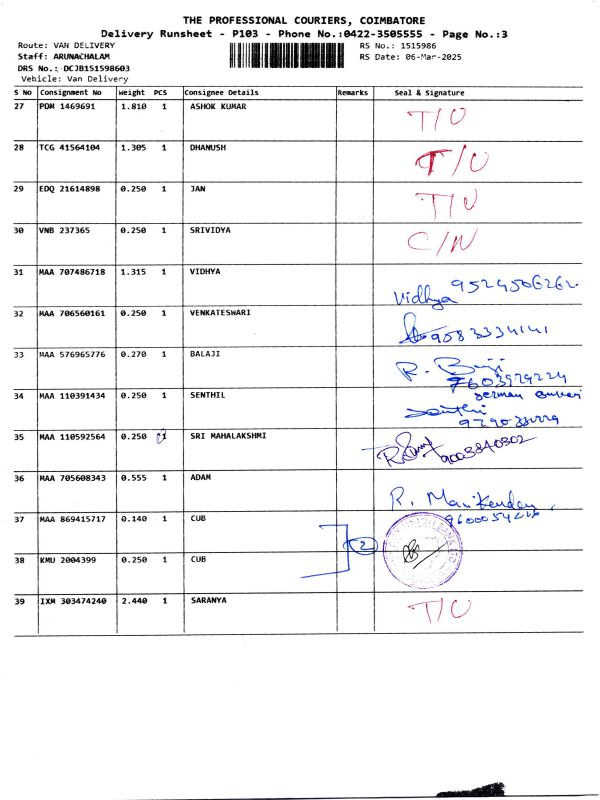 THE PROFESSIONAL COURIERS, COIMBATORE
Delivery Runsheet - P103 - Phone No.:0422-3505555 - Page No.:3
Route: VAN DELIVERY RS No.: 1515986
Staff: ARUNACHALAM RS Date: 06-Mar-2025
DRS No.: DCJB151598603
Vehicle: Van Delivery
S No Consignment No Weight PCS Consignee Details Remarks Seal & Signature
27 PDM 1469691 1.810 1 ASHOK KUMAR T/O
28 TCG 41564104 1.305 1 DHANUSH T/O
29 EDQ 21614898 0.250 1 JAN T/O
30 VNB 237365 0.250 1 SRIVIDYA C/N
31 MAA 707486718 1.315 1 VIDHYA Vidhya 9524506262
32 MAA 706560161 0.250 1 VENKATESWARI 9583334141
33 MAA 576965776 0.270 1 BALAJI R.
34 MAA 110391434 0.250 1 SENTHIL
35 MAA 110592564 0.250 1 SRI MAHALAKSHMI 9003840302
36 MAA 705608343 0.555 1 ADAM R. Manikandan
37 MAA 869415717 0.140 1 CUB
2
38 KMU 2004399 0.250 1 CUB
39 IXM 303474240 2.440 1 SARANYA T/O